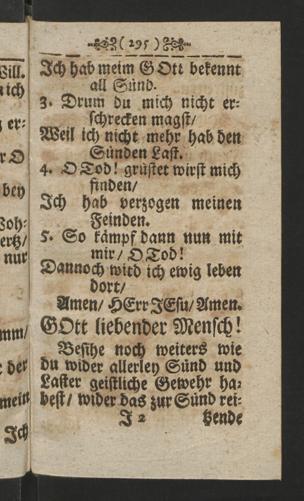 (295)
Ich hab meim GOtt bekennt
all Sünd.
3. Drum du mich nicht er-
schrecken magst/
Weil ich nicht mehr hab den
Sünden Last.
4. O Tod! grüstet wirst mich
finden/
Ich hab verzogen meinen
Feinden.
5. So kämpf dann nun mit
mir/ O Tod!
Dannoch wird ich ewig leben
dort/
Amen/ HErr JEsu/ Amen.
GOtt liebender Mensch!
Besihe noch weiters wie
du wider allerley Sünd und
Laster geistliche Gewehr ha-
best/ wider das zur Sünd rei-
J 2 tzende